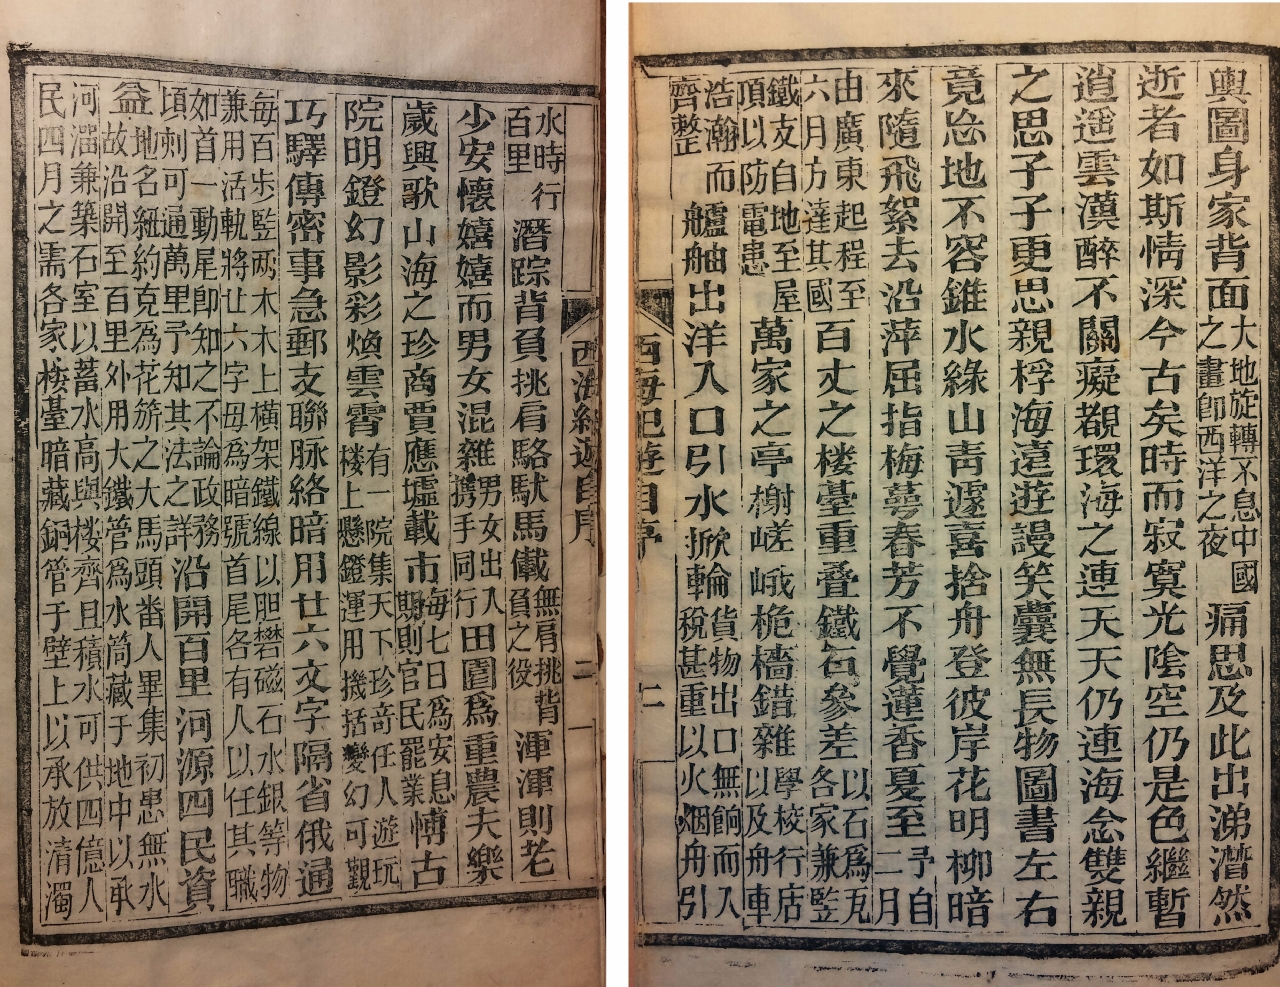 輿圖身家背面大地旋轉不息中國之畫卽西洋之夜痛思及此出涕潸然
逝者如斯情深今古矣時而寂寞光陰空仍是色繼暫
逍遥雲漢醉不關癡覩環海之連天天仍連海念雙親
之思子子更思親桴海遠遊謾笑囊無長物圖書左右
竟忩地不容錐水綠山靑遽喜捨舟登彼岸花明柳暗
來隨飛絮去沿萍屈指梅蕚春芳不覺蓮香夏至予自二月
由廣東起程至六月方達其國百丈之楼臺重叠鐵石參差以石爲瓦各家兼監
鐵支自地至屋頂以防電患萬家之亭榭嵯峨桅檣錯雜學校行店以及舟車
浩瀚而齊整艫舳出洋入口引水掀輪貨物出口無餉而入稅甚重以火烟舟引
西海紀遊自序
二
水時行百里潛踪背負挑肩駱馱馬儎無肩挑背負之役渾渾則老
少安懷嬉嬉而男女混雜男女出入携手同行田園爲重農夫樂
歲興歌山海之珍商賈應墟載市每七日爲安息期則官民罷業愽古
院明鐙幻影彩煥雲霄有一院集天下珍奇任人遊玩楼上懸鐙運用機括變幻可觀
巧驛傳密事急郵支聯脉絡暗用廿六文字隔省俄通
每百步監兩木木上橫架鐵線以胆礬磁石水銀等物兼用活軌將廿六字母爲暗號首尾各有人以任其職
如首一動尾卽知之不論政務頃刺可通萬里予知其法之詳沿開百里河源四民資
益地名紐約克爲花旂之大馬頭畨人畢集初患無水故沿開至百里外用大鐵管爲水筒藏于地中以承
河溜兼築石室以蓄水高與楼齊且積水可供四億人民四月之需各家楼臺暗藏銅管于壁上以承放清濁
西海紀遊自序
二